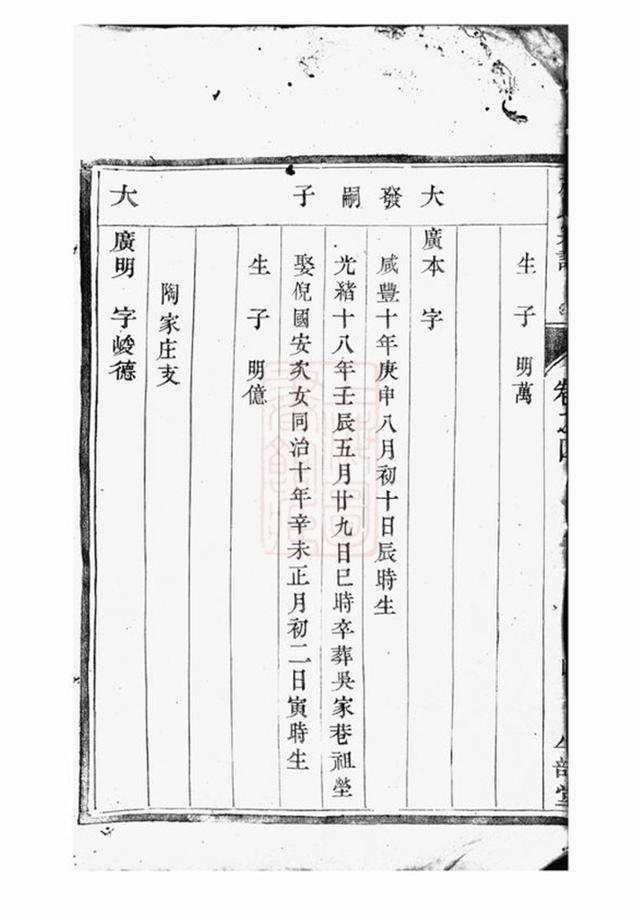 卷之四
生子 明萬
大發嗣子
廣本 字
咸豐十年庚申八月初十日辰時生
光緒十八年壬辰五月廿九日巳時卒葬吳家巷祖塋
娶倪國安次女同治十年辛未正月初二日寅時生
生子 明億
陶家庄支
大
廣明 字峻德